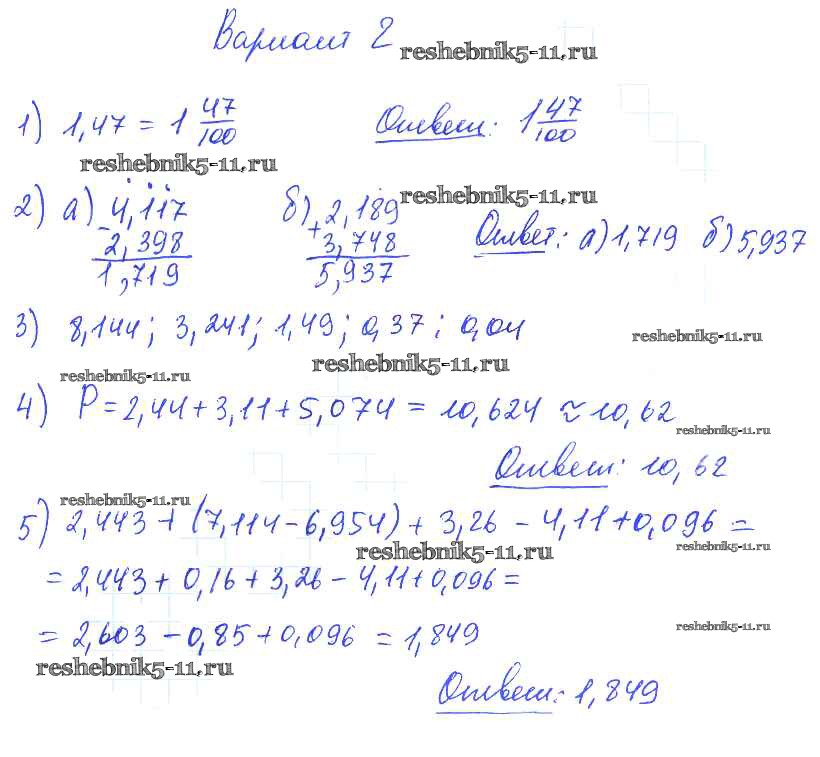 Вариант 2 reshebnik5-11.ru
1) 1,47 = 1 47/100 Ответ: 1 47/100
reshebnik5-11.ru
reshebnik5-11.ru
2) а) 4,117 б) 2,189
- 2,398 + 3,748 Ответ: а) 1,719 б) 5,937
1,719 5,937
3) 8,144; 3,241; 1,49; 0,37; 0,04 reshebnik5-11.ru
reshebnik5-11.ru
reshebnik5-11.ru
4) P = 2,44 + 3,11 + 5,074 = 10,624 ≈ 10,62
reshebnik5-11.ru
Ответ: 10,62
reshebnik5-11.ru
5) 2,443 + (7,114 - 6,954) + 3,26 - 4,11 + 0,096 =
reshebnik5-11.ru reshebnik5-11.ru
= 2,443 + 0,16 + 3,26 - 4,11 + 0,096 =
= 2,603 - 0,85 + 0,096 = 1,849 reshebnik5-11.ru
reshebnik5-11.ru
Ответ: 1,849